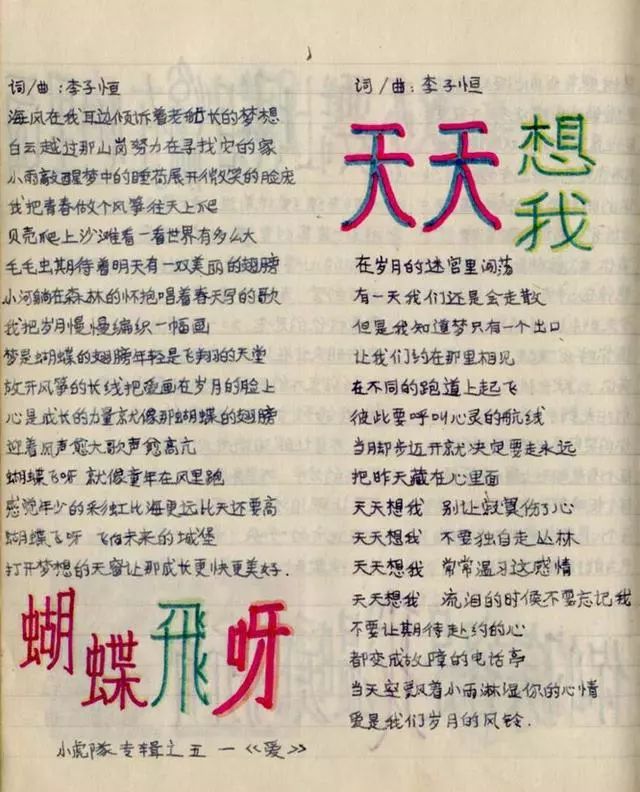 词/曲:李子恒
海风在我耳边倾诉着老船长的梦想
白云越过那山岗努力在寻找它的家
小雨敲醒梦中的睡荷展开微笑的脸庞
我把青春做个风筝往天上爬
贝壳爬上沙滩看一看世界有多么大
毛毛虫期待着明天有一双美丽的翅膀
小河躺在森林的怀抱唱着春天写的歌
我把岁月慢慢编织一幅画
梦是蝴蝶的翅膀年轻是飞翔的天堂
放开风筝的长线把爱画在岁月的脸上
心是成长的力量就像那蝴蝶的翅膀
迎着风声愈大歌声愈高亢
蝴蝶飞呀 就像童年在风里跑
感觉年少的彩虹比海更远比天还要高
蝴蝶飞呀 飞向未来的城堡
打开梦想的天窗让那成长更快更美好.
蝴蝶飛呀
小虎隊专辑之五 — 《爱》
词/曲:李子恒
天天想我
在岁月的迷宫里闯荡
有一天我们还是会走散
但是我知道梦只有一个出口
让我们约在那里相见
在不同的跑道上起飞
彼此要呼叫心灵的航线
当脚步迈开就决定要走永远
把昨天藏在心里面
天天想我 别让寂寞伤了心
天天想我 不要独自走丛林
天天想我 常常温习这感情
天天想我 流泪的时候不要忘记我
不要让期待赴约的心
都变成故障的电话亭
当天空飘着小雨淋湿你的心情
爱是我们岁月的风铃.